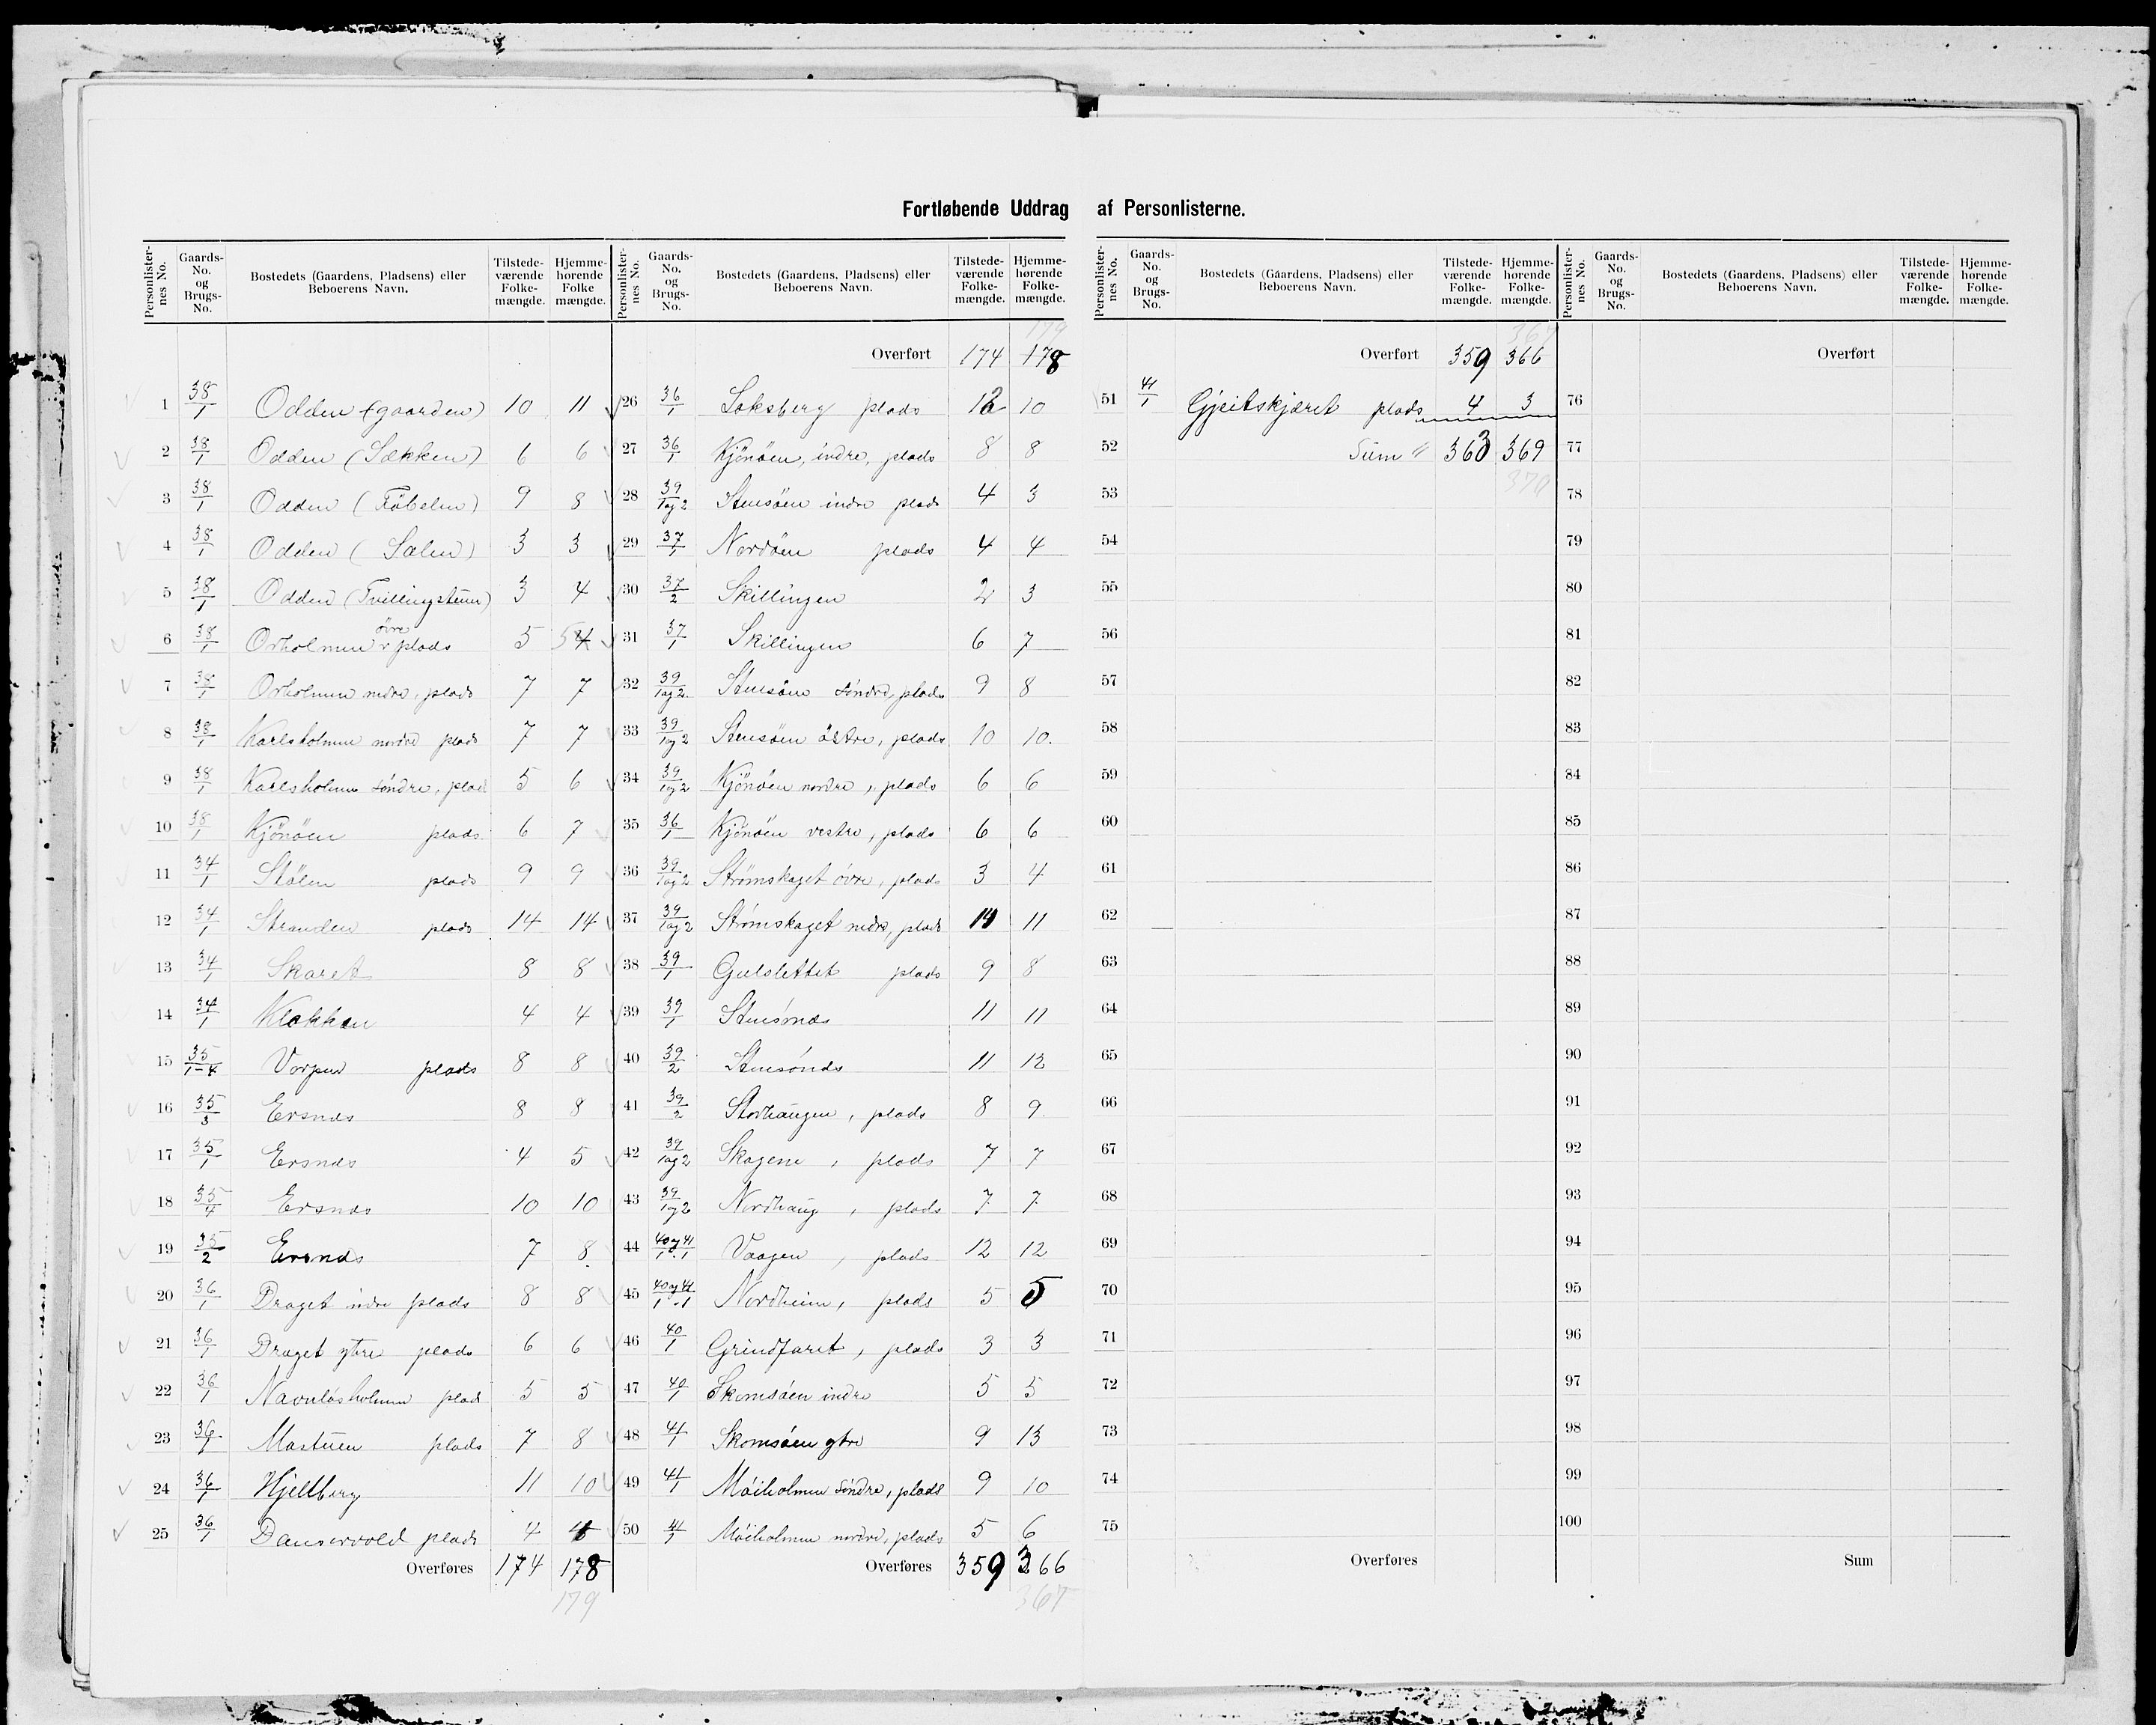 Fortløbende Uddrag af Personlisterne.
Personlister-nes No. Gaards-No. og Brugs-No. Bostedets (Gaardens, Pladsens) eller Beboerens Navn. Tilstede-værende Folke-mængde. Hjemme-hørende Folke mængde.
1 38/1 Odden (gaarden) 10 11
2 38/1 Odden (Sækken) 6 6
3 38/1 Odden (Föbelen) 9 8
4 38/1 Odden (Salen) 3 3
5 38/1 Odden (Tvillingstuen) 3 4
6 38/1 Orholmen övre plads 5 5 4
7 38/1 Orholmen nedre, plads 7 7
8 38/1 Karlsholmen nordre plads 7 7
9 38/1 Karlsholmen söndre, plad 5 6
10 38/1 Kjönöen plads 6 7
11 34/1 Stölen plads 9 9
12 34/1 Stranden plads 14 14
13 34/1 Skaret 8 8
14 34/1 Klakken 4 4
15 35/1-4 Vorpen plads 8 8
16 35/3 Ersnæs 8 8
17 35/1 Ersnæs 4 5
18 35/4 Ersnæs 10 10
19 35/2 Ersnæs 7 8
20 36/1 Draget indre plads 8 8
21 36/1 Draget ytre plads 6 6
22 36/1 Navnlösholmen plad 5 5
23 36/1 Mastuen plads 7 8
24 36/1 Hjellberg 11 10
25 36/1 Danservold plads 4
Overføres 174 178
179
Personlister-nes No. Gaards-No. og Brugs-No. Bostedets (Gaardens, Pladsens) eller Beboerens Navn. Tilstede-værende Folke-mængde. Hjemme-hørende Folke-mængde.
179
Overført 174 178
26 36/1 Laksberg plads 12 10
27 36/1 Kjönöen, indre, plads 8 8
28 39/1og2 Stensöen indre plads 4 3
29 37/1 Nordöen plads 4 4
30 37/2 Skillingen 2 3
31 37/1 Skillingen 6 7
32 39/1og2 Stensöen söndre, plads 9 8
33 39/1og2 Stensöen östre, plads 10 10.
34 39/1og2 Kjönöen nordre, plads 6 6
35 36/1 Kjönöen vestre, plads 6 6
36 39/1og2 Strömskaget övre, plads 3 4
37 39/1og2 Strömskaget nedre, plads 11
38 39/1 Gulslettet plads 9 8
39 39/1 Stensönæs 11 11
40 39/2 Stensönæs 11 12
41 39/2 Storhaugen, plads 8 9
42 39/1og2 Skagene, plads 7 7
43 39/1og2 Nordhaug, plads 7 7
44 40og41/1.1 Vaagen, plads 12 12
45 40og41/1.1 Nordheim, plads 5 5
46 40/1 Grindfaret, plads 3 3
47 40/1 Skomsöen indre 5 5
48 41/1 Skomsöen ytre 9 13
49 41/1 Möiholmen söndre, plads 9 10
50 41/1 Möiholmen nordre, plads 5 6
Overføres 359 366
367
Personlister-nes No. Gaards-No. og Brugs-No. Bostedets (Gaardens, Pladsens) eller Beboerens Navn. Tilstede-værende Folke-mængde. Hjemme-hørende Folke-mængde.
367
Overført 359 366
51 41/1 Gjeitskjæret plads 4 3
52 Sum " 363 369
53 370
54
55
56
57
58
59
60
61
62
63
64
65
66
67
68
69
70
71
72
73
74
75
Overføres
Personlister-nes No. Gaards-No. og Brugs-No. Bostedets (Gaardens, Pladsens) eller Beboerens Navn. Tilstede-værende Folke-mængde. Hjemme-hørende Folke-mængde.
Overført
76
77
78
79
80
81
82
83
84
85
86
87
88
89
90
91
92
93
94
95
96
97
98
99
100
Sum